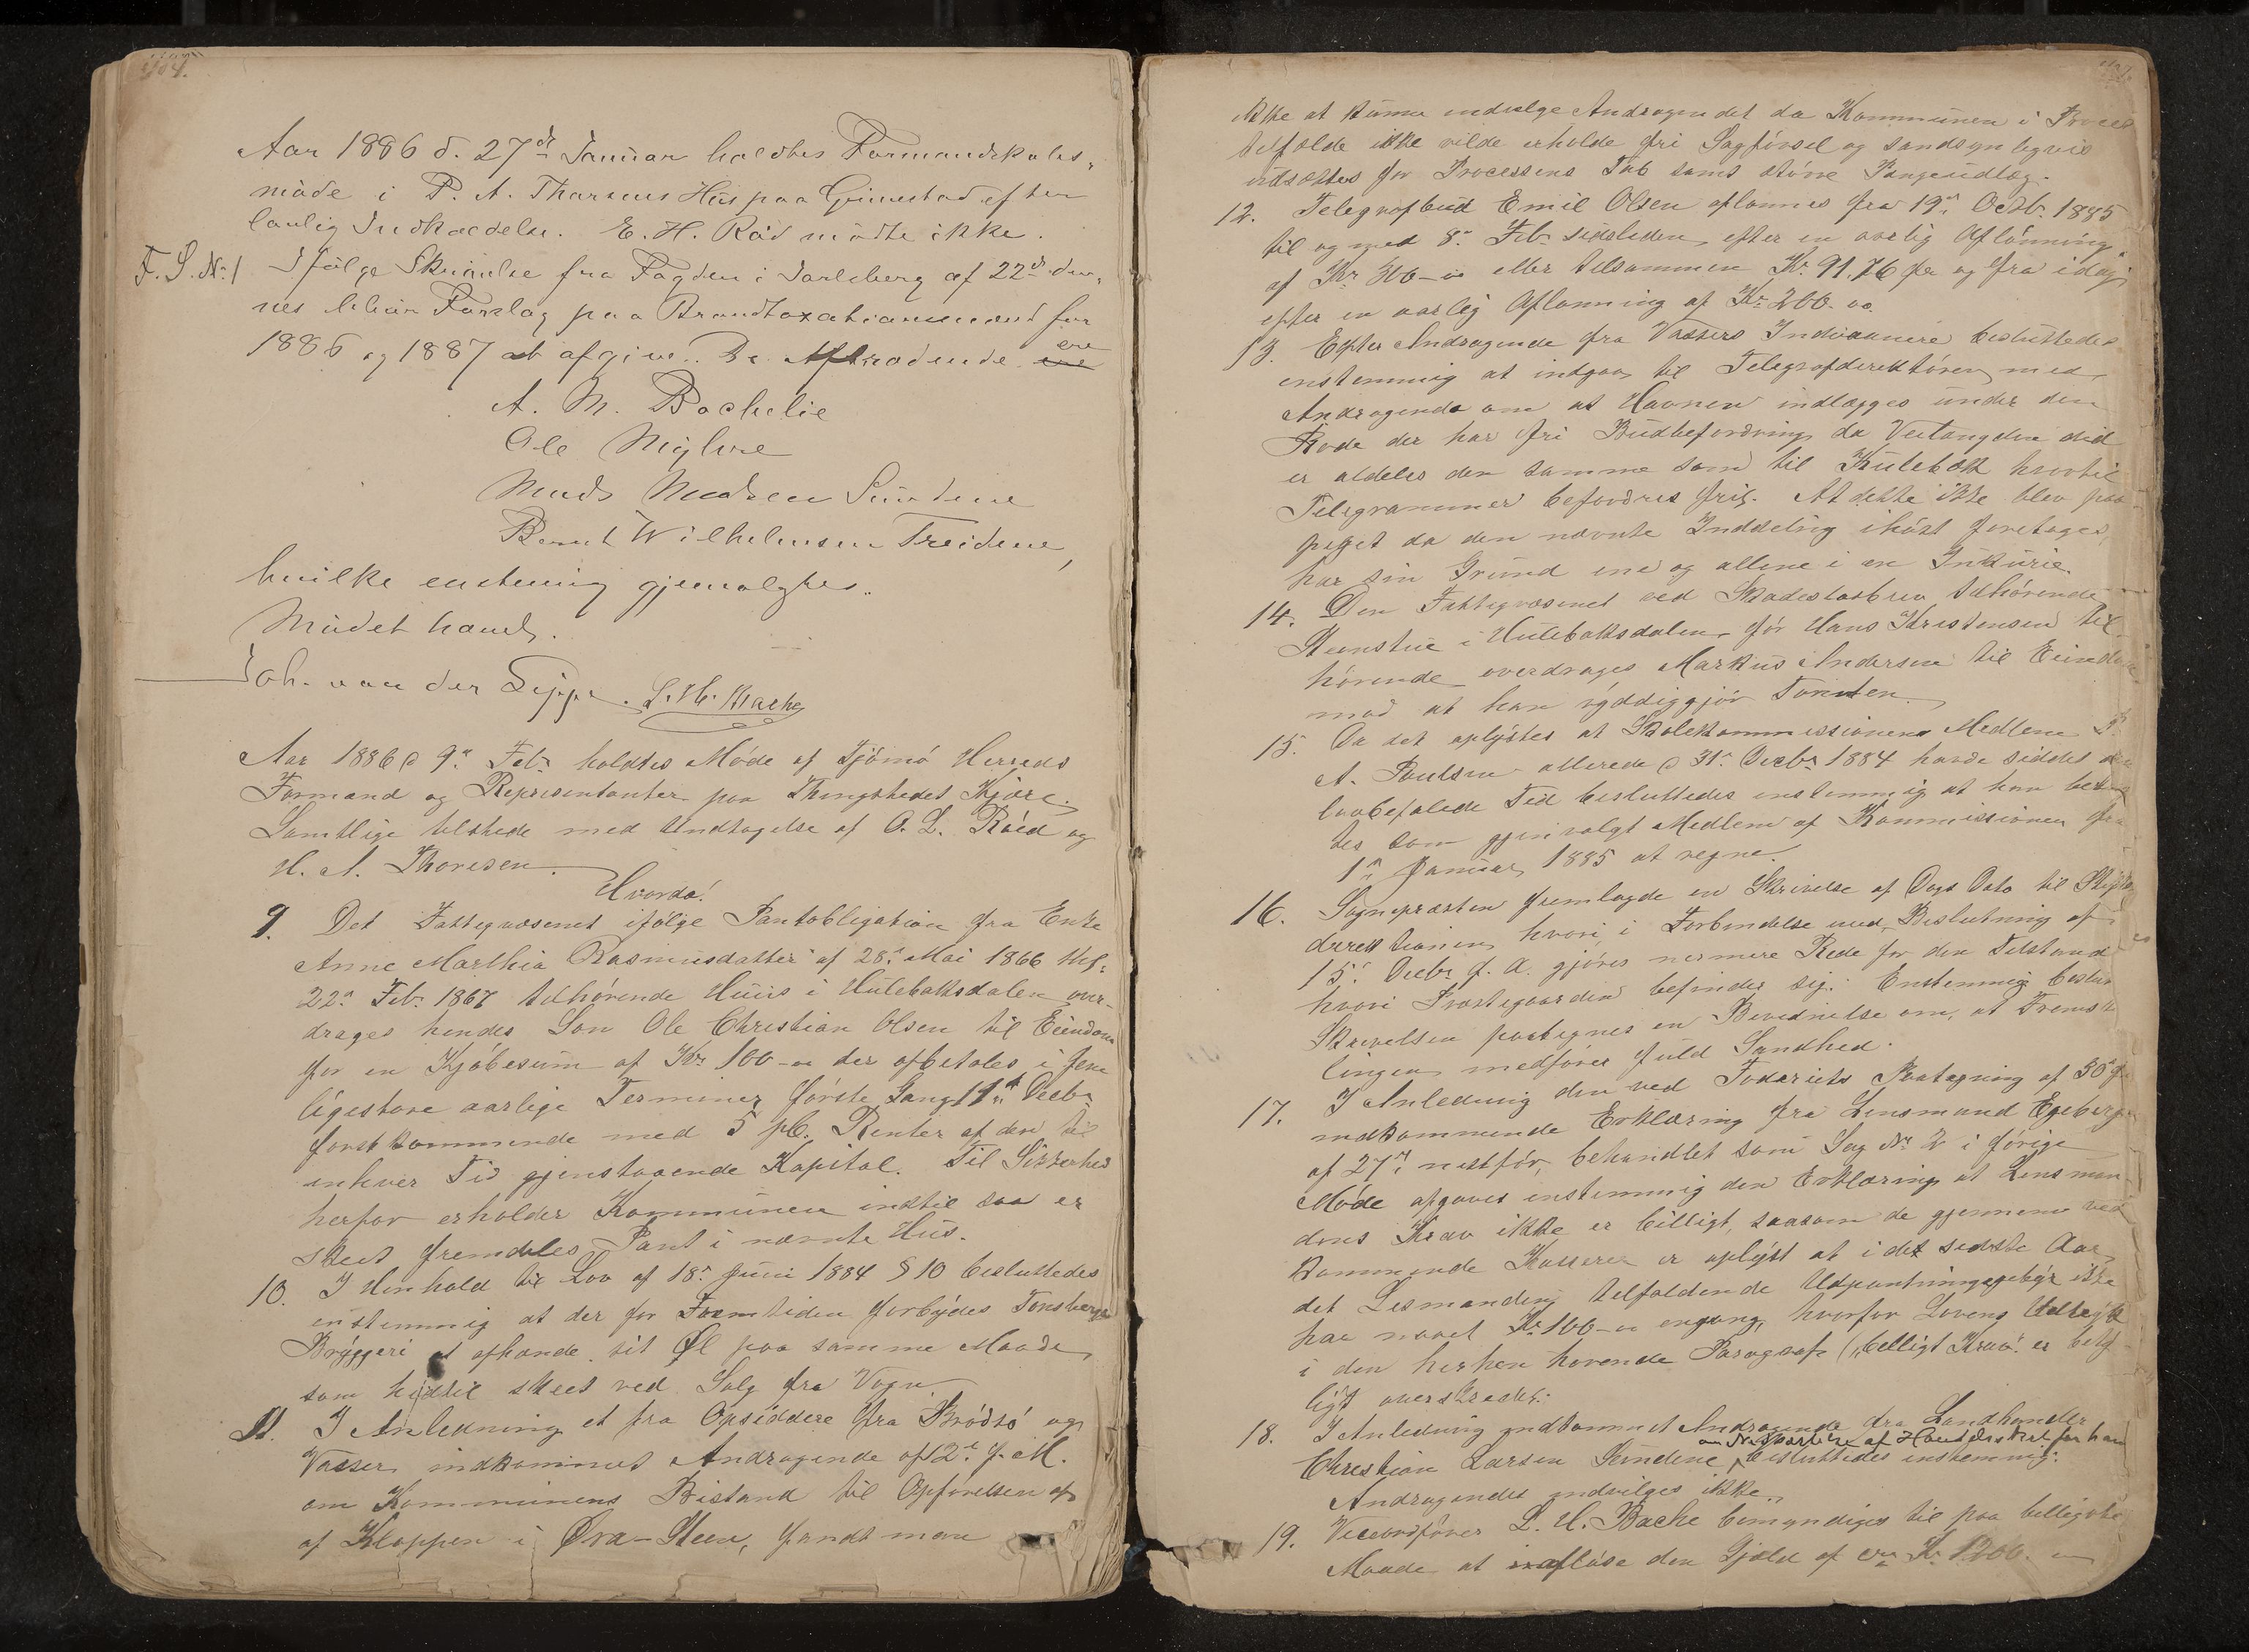 Aar 1886 d. 27de Januar holdtes Formandskabs-
møde i P. A. Thorsens Hus paa Grimestad efter
lovlig Indkaldelse. E. H. Röd mödte ikke.
F. S. No 1 Ifølge Skrivelse fra Fogden i Jarlsberg af 22de den-
nes bliver Forslag paa Brandtaxationsmænd for
1886 og 1887 at afgive. De Aftrædende ere
A. M. Bachelie
Ole Myhre
Mads Madsen Sundene
Bernt Wilhelmsen Treidene,
hvilke enstemig gjenvalgtes.
Mödet hævet.
Joh. van der Lippe. L. H. Bache
Aar 1886 d 9de Febr holdtes Möde af Tjömö Herreds
Formand og Repræsentanter paa Thingstedet Kjære.
Samtlige tilstede med Undtagelse af O. L. Röed og
H. A. Thoresen.
Hvorda!
9. Det Fattigvæsenet ifölge Pantobligation fra Enke
Anne Marthia Rasmusdatter af 28de Mai 1866
22de Feb. 1867 tilhörende Huus i Hulebaksdalen over-
drages hendes Sön Ole Christian Olsen til Eiendom
for en Kjöbesum af Kr 100 der afbetales i fem
ligestore aarlige Terminer förste Gang 11te Decbr
förstkommende med 5 pC. Renter af den til
enhver Tid gjenstaaende Kapital. Til Sikkerhed
herfor erholder Kommunen indtil saa er
skeet fremdeles Pant i nævnte Hus.
10. I Henhold til Lov af 18de Juni 1884 § 10 besluttedes
enstemmig at der for Fremtiden forbydes Tönsbergs
Bryggeri at afhænde sit Øl paa samme Maade
som hidtil skeet ved Salg fra Vogn
11. I Anledning et fra Opsiddere fra Brödsö og
Vasser indkommet Andragende af 2de f. M.
om Kommunens Bistand til Opförelsen af
af Kloppen i Øra-Steen, fandt man
ikke at kunne indvilge Andragendet da Kommunen i Proces
tilfælde ikke vilde erholde fri Sagförsel og sandsynligvis
udsættes for Processens Tab samt större Pengeudlæg.
12. Telegrafbud Emil Olsen aflönnes fra 19de Octbr 1885
til og med 8de Febr sidstleden efter en aarlig Aflönning
af Kr 300 eller tilsammen Kr. 91.76 og fra idag
efter en aarlig Aflönning af Kr 200.00.
13. Efter Andragende fra Vassers Indvaanere besluttedes
enstemmig at indgaa til Telegrafdirektören med
Andragende om at Havnen indlægges under den
Rode der har fri Budbefordring, da Veilængden did
er aldeles den samme som til Hulebak hvortil
Telegrammer befordres frit. At dette ikke blev paa-
peget da den nævnte Inddeling ihöst foretoges,
har sin Grund ene og allene i en Inkurie.
14. Den Fattigvæsenet ved Skadeslösbrev tilhörende
Steenstue i Hulebaksdalen, för Hans Kristensen til
hörende overdrages Markus Andersen til Eiendom
mod at han ryddiggjör Tomten.
15. Da det oplystes at Skolekommissionens Medlem P.
A. Poulsen allerede d 31te Decbr 1884 havde siddet den
lovbefalede Tid besluttedes enstemmig at han betrag
tes som gjenvalgt Medlem af Kommissionen fra
1ste Januar 1885 at regne.
16. Sognepræsten fremlagde en Skrivelse af Dags Dato til Stifts
direktionen hvori i Forbindelse med Beslutning af
15de Decbr f. A. gjöres nermere Rede for den Tilstand
hvori Præstegaarden befinder sig. Enstemmig beslut
Skrivelsen paategnes en Bevidnelse om, at Fremstil
lingen medförer fuld Sandhed.
17. I Anledning den ved Fogderiets Paategning af 30te
indkommende Erklæring fra Lensmand Egeberg
af 27de næstför, behandlet som Sag No 2 i forrige
Möde afgaves enstemmig den Erklæring at Lensman-
dens Krav ikke er billigt, saasom de gjennem ved
kommende Kasserer er oplyst at i det sidste Aar
det Lensmanden tilfaldende Udpantningsgebyr ikke
har naaet Kr 100 engang, hvorfor Lovens Udtryk
i den herhen hörende Paragraf ("billigt Krav" er
ligt overskredet.
18. I Anledning indkommet Andragende fra Landhandler
om Nedsættelse af Handelsskat for ham
Christian Larsen Sundene besluttedes enstemmig:
Andragendet indvilges ikke.
19. Viceordförer L. H. Bache bemyndiges til paa billigste
Maade at aflöse den Gjæld af Kr. 1200.